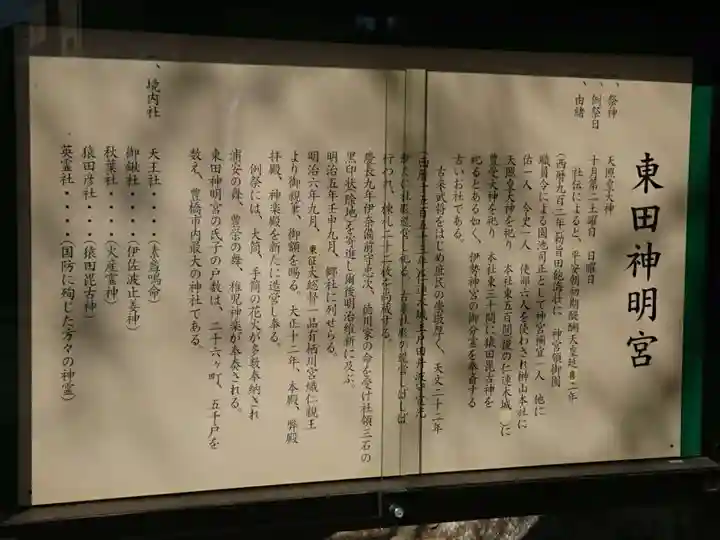 東田神明宮
、祭神 天照皇大神
、例祭日 十月第二土曜日 日曜日
、由緒 社伝によると、平安朝初期醍醐天皇延喜二年
(西暦九百二年)勅旨田飽海荘に 神宮領御園
職員令による園池司正として神宮禰宜一人 他に
佑一人 令史一人 使部六人を使わされ榊山本社に
天照皇大神を祀り 本社東五百間(後の仁連木城)に
豊受大神を祀り 本社東三十間に猿田毘古神を
祀るとあるが如く、伊勢神宮の御分霊を奉斎する
古いお社である。
古来武将をはじめ庶民の崇敬厚く、天文二十二年
(西暦千五百五十三年)仁連木城主戸田
行われ、棟札二十二枚を局蔵する。
慶長九年伊奈備前守忠次、徳川家の命を受け社領三石の
黒印状除地を寄進し爾後明治維新に及ぶ。
明治五年壬申九月、郷社に列せらる。
明治六年九月、東征大総督一品有栖川宮熾仁親王
より御親筆、御額を賜る。大正十二年、本殿、弊殿
拝殿、神楽殿を新たに造営し奉る。
例祭には、大筒、手筒の花火が多数奉納され
浦安の舞、豊栄の舞、稚児神楽が奉奏される。
東田神明宮の氏子の戸数は、二十六ヶ町、五千戸を
数え、豊橋市内最大の神社である。
、境内社 天王社・・・・(素盞鳴命)
御鍬社・・・・(伊佐波止美神)
秋葉社・・・・(火産霊神)
猿田彦社・・・(猿田毘古神)
英霊社・・・・(国防に殉じた方々の神霊)